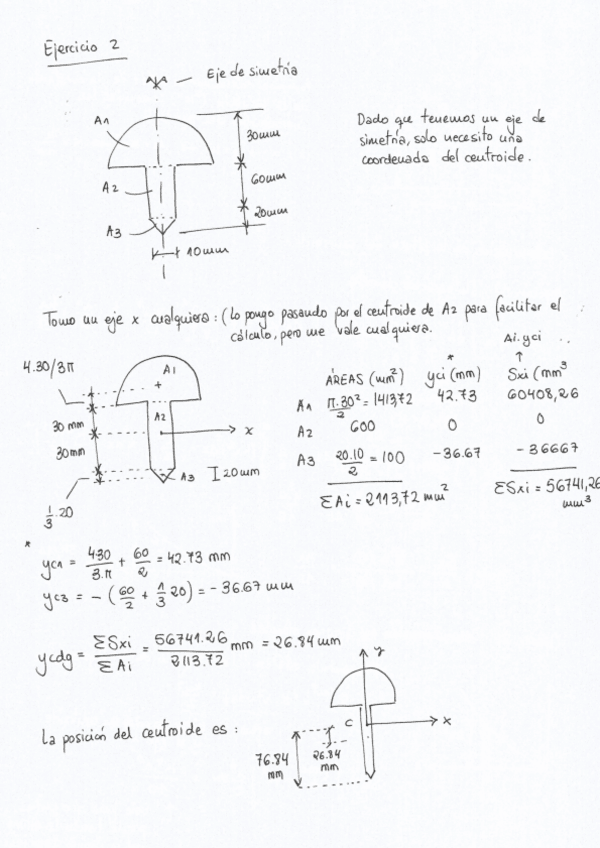 Ejercicio 2
Eje de simetría
A1
30mm
A2
60mm
A3
20mm
10mm
Dado que tenemos un eje de
simetría, solo necesito una
coordenada del centroide.
Tomo un eje x cualquiera: (Lo pongo pasando por el centroide de A2 para facilitar el
cálculo, pero me vale cualquiera.
Ai.yci
4.30/3π
A1
+
A2
30 mm
x
30mm
A3
20mm
1/3.20
ÁREAS (mm²) yci (mm) * Sxi (mm³
A1 π.30²/2 = 1413,72 42.73 60408,26
A2 600 0 0
A3 20.10/2 = 100 -36.67 -36667
ΣAi = 2113,72 mm² ΣSxi = 56741,26
mm³
*
yc1 = 4.30/3.π + 60/2 = 42.73 mm
yc3 = -(60/2 + 1/3 20) = -36.67 mm
ycdg = ΣSxi/ΣAi = 56741.26/2113.72 mm = 26.84 mm
y
La posición del centroide es:
C
x
76.84
mm
26.84
mm